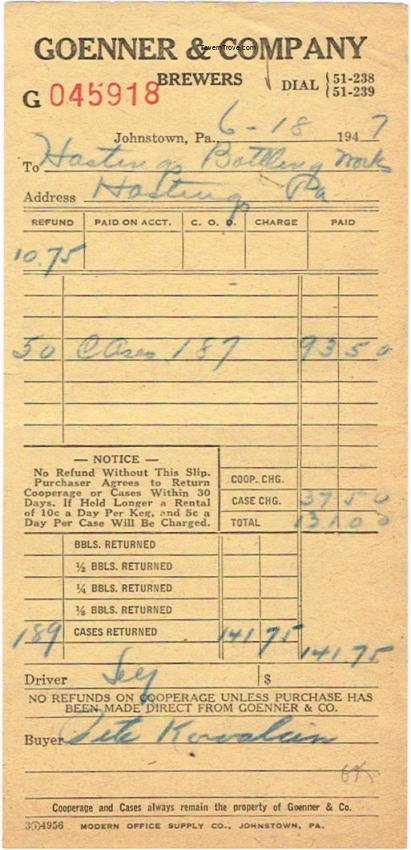 TavernTrove.com
GOENNER & COMPANY
BREWERS
G 045918
DIAL { 51-238
51-239
Johnstown, Pa. 6-18 1947
To Hastings Bottling Works
Address Hastings Pa
REFUND PAID ON ACCT. C. O. D. CHARGE PAID
10.75
50 Cases 187 93 50
— NOTICE —
No Refund Without This Slip.
Purchaser Agrees to Return
Cooperage or Cases Within 30
Days. If Held Longer a Rental
of 10c a Day Per Keg, and 5c a
Day Per Case Will Be Charged.
COOP. CHG.
CASE CHG. 37 50
TOTAL 131 00
BBLS. RETURNED
½ BBLS. RETURNED
¼ BBLS. RETURNED
⅛ BBLS. RETURNED
189 CASES RETURNED 141 75 141.75
Driver $
NO REFUNDS ON COOPERAGE UNLESS PURCHASE HAS
BEEN MADE DIRECT FROM GOENNER & CO.
Buyer Pete
Cooperage and Cases always remain the property of Goenner & Co.
4956 MODERN OFFICE SUPPLY CO., JOHNSTOWN, PA.